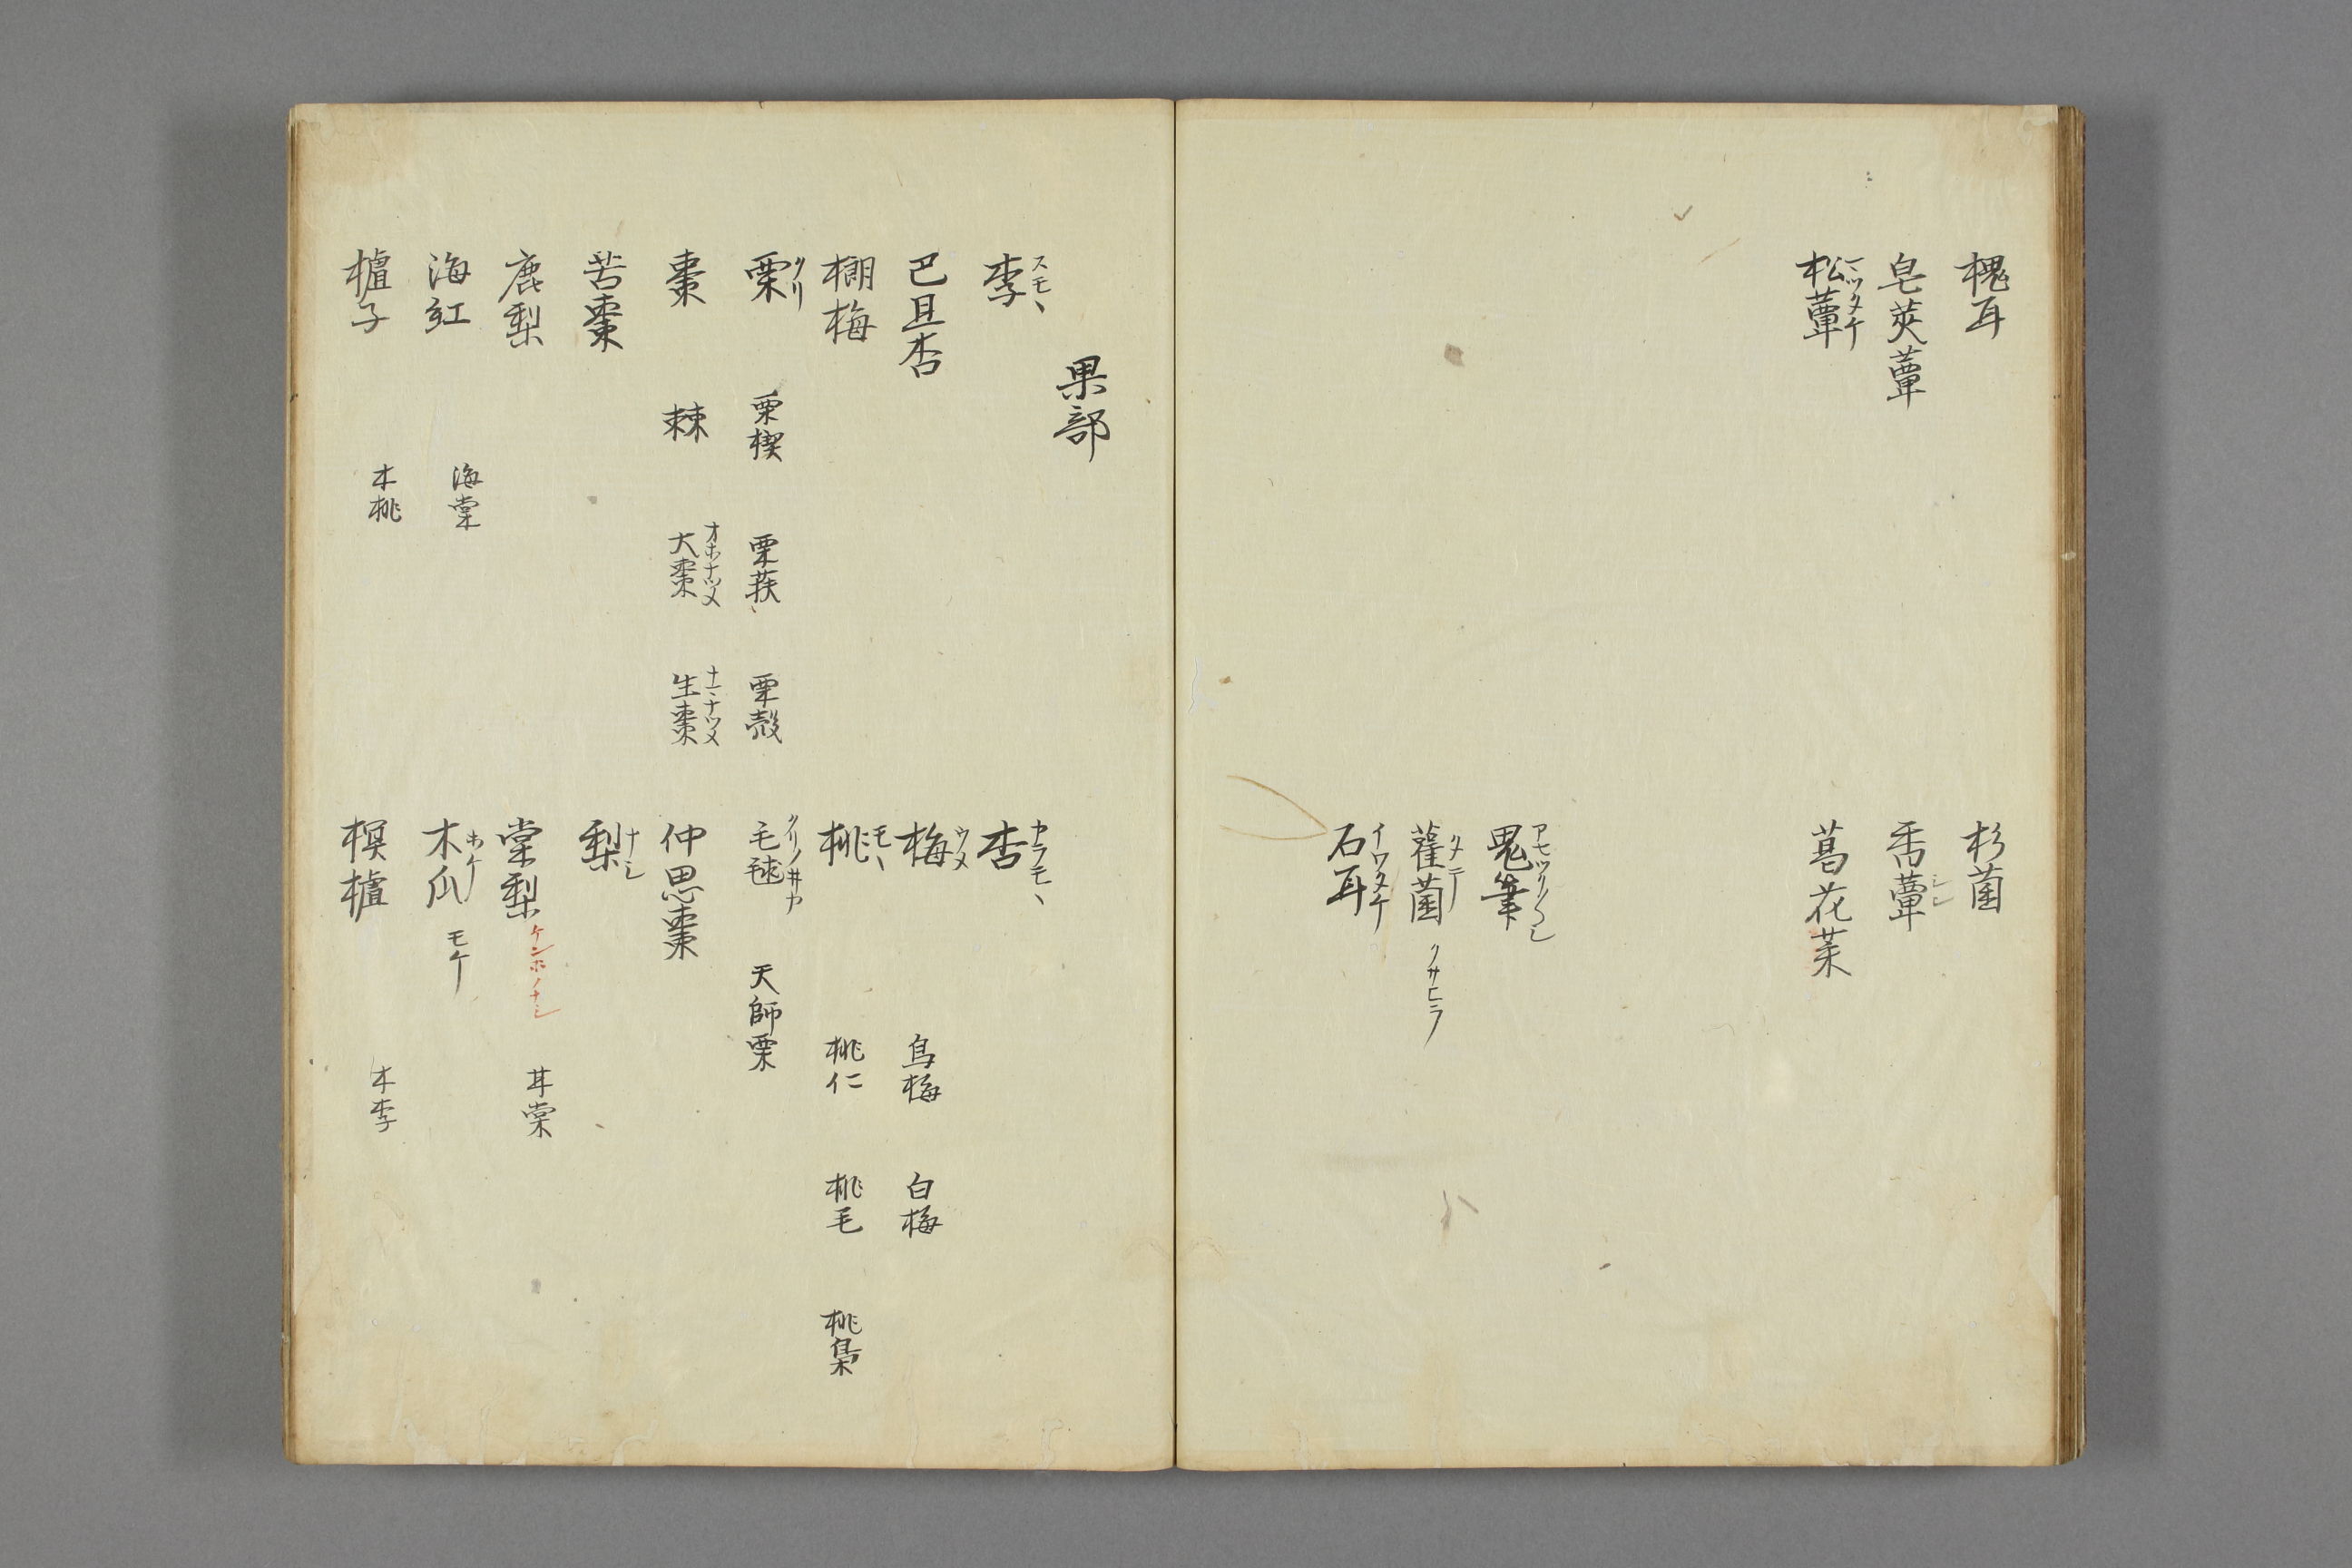 槐耳
杉菌
皂莢蕈
香蕈 シシ
松蕈 マツタケ
葛花菜
鬼筆 アセツリノヘシ
雚菌 クサヒラ
石耳 イワタケ
果部
李 スモヽ
杏 カラモヽ
巴旦杏
梅 ウメ 烏梅 白梅
棚梅
桃 モヽ 桃仁 桃毛 桃梟
栗 クリ 栗楔 栗荴 栗殻
毛毬 クリノイカ 天師栗
棗 棘 大棗 オホナツメ 生棗 ナマナツメ
仲思棗
苦棗
梨 ナシ
鹿梨
棠梨 ケンホノナシ 甘棠
海紅 海棠
木瓜 ホケ モケ
樝子 木桃
榠樝 木李